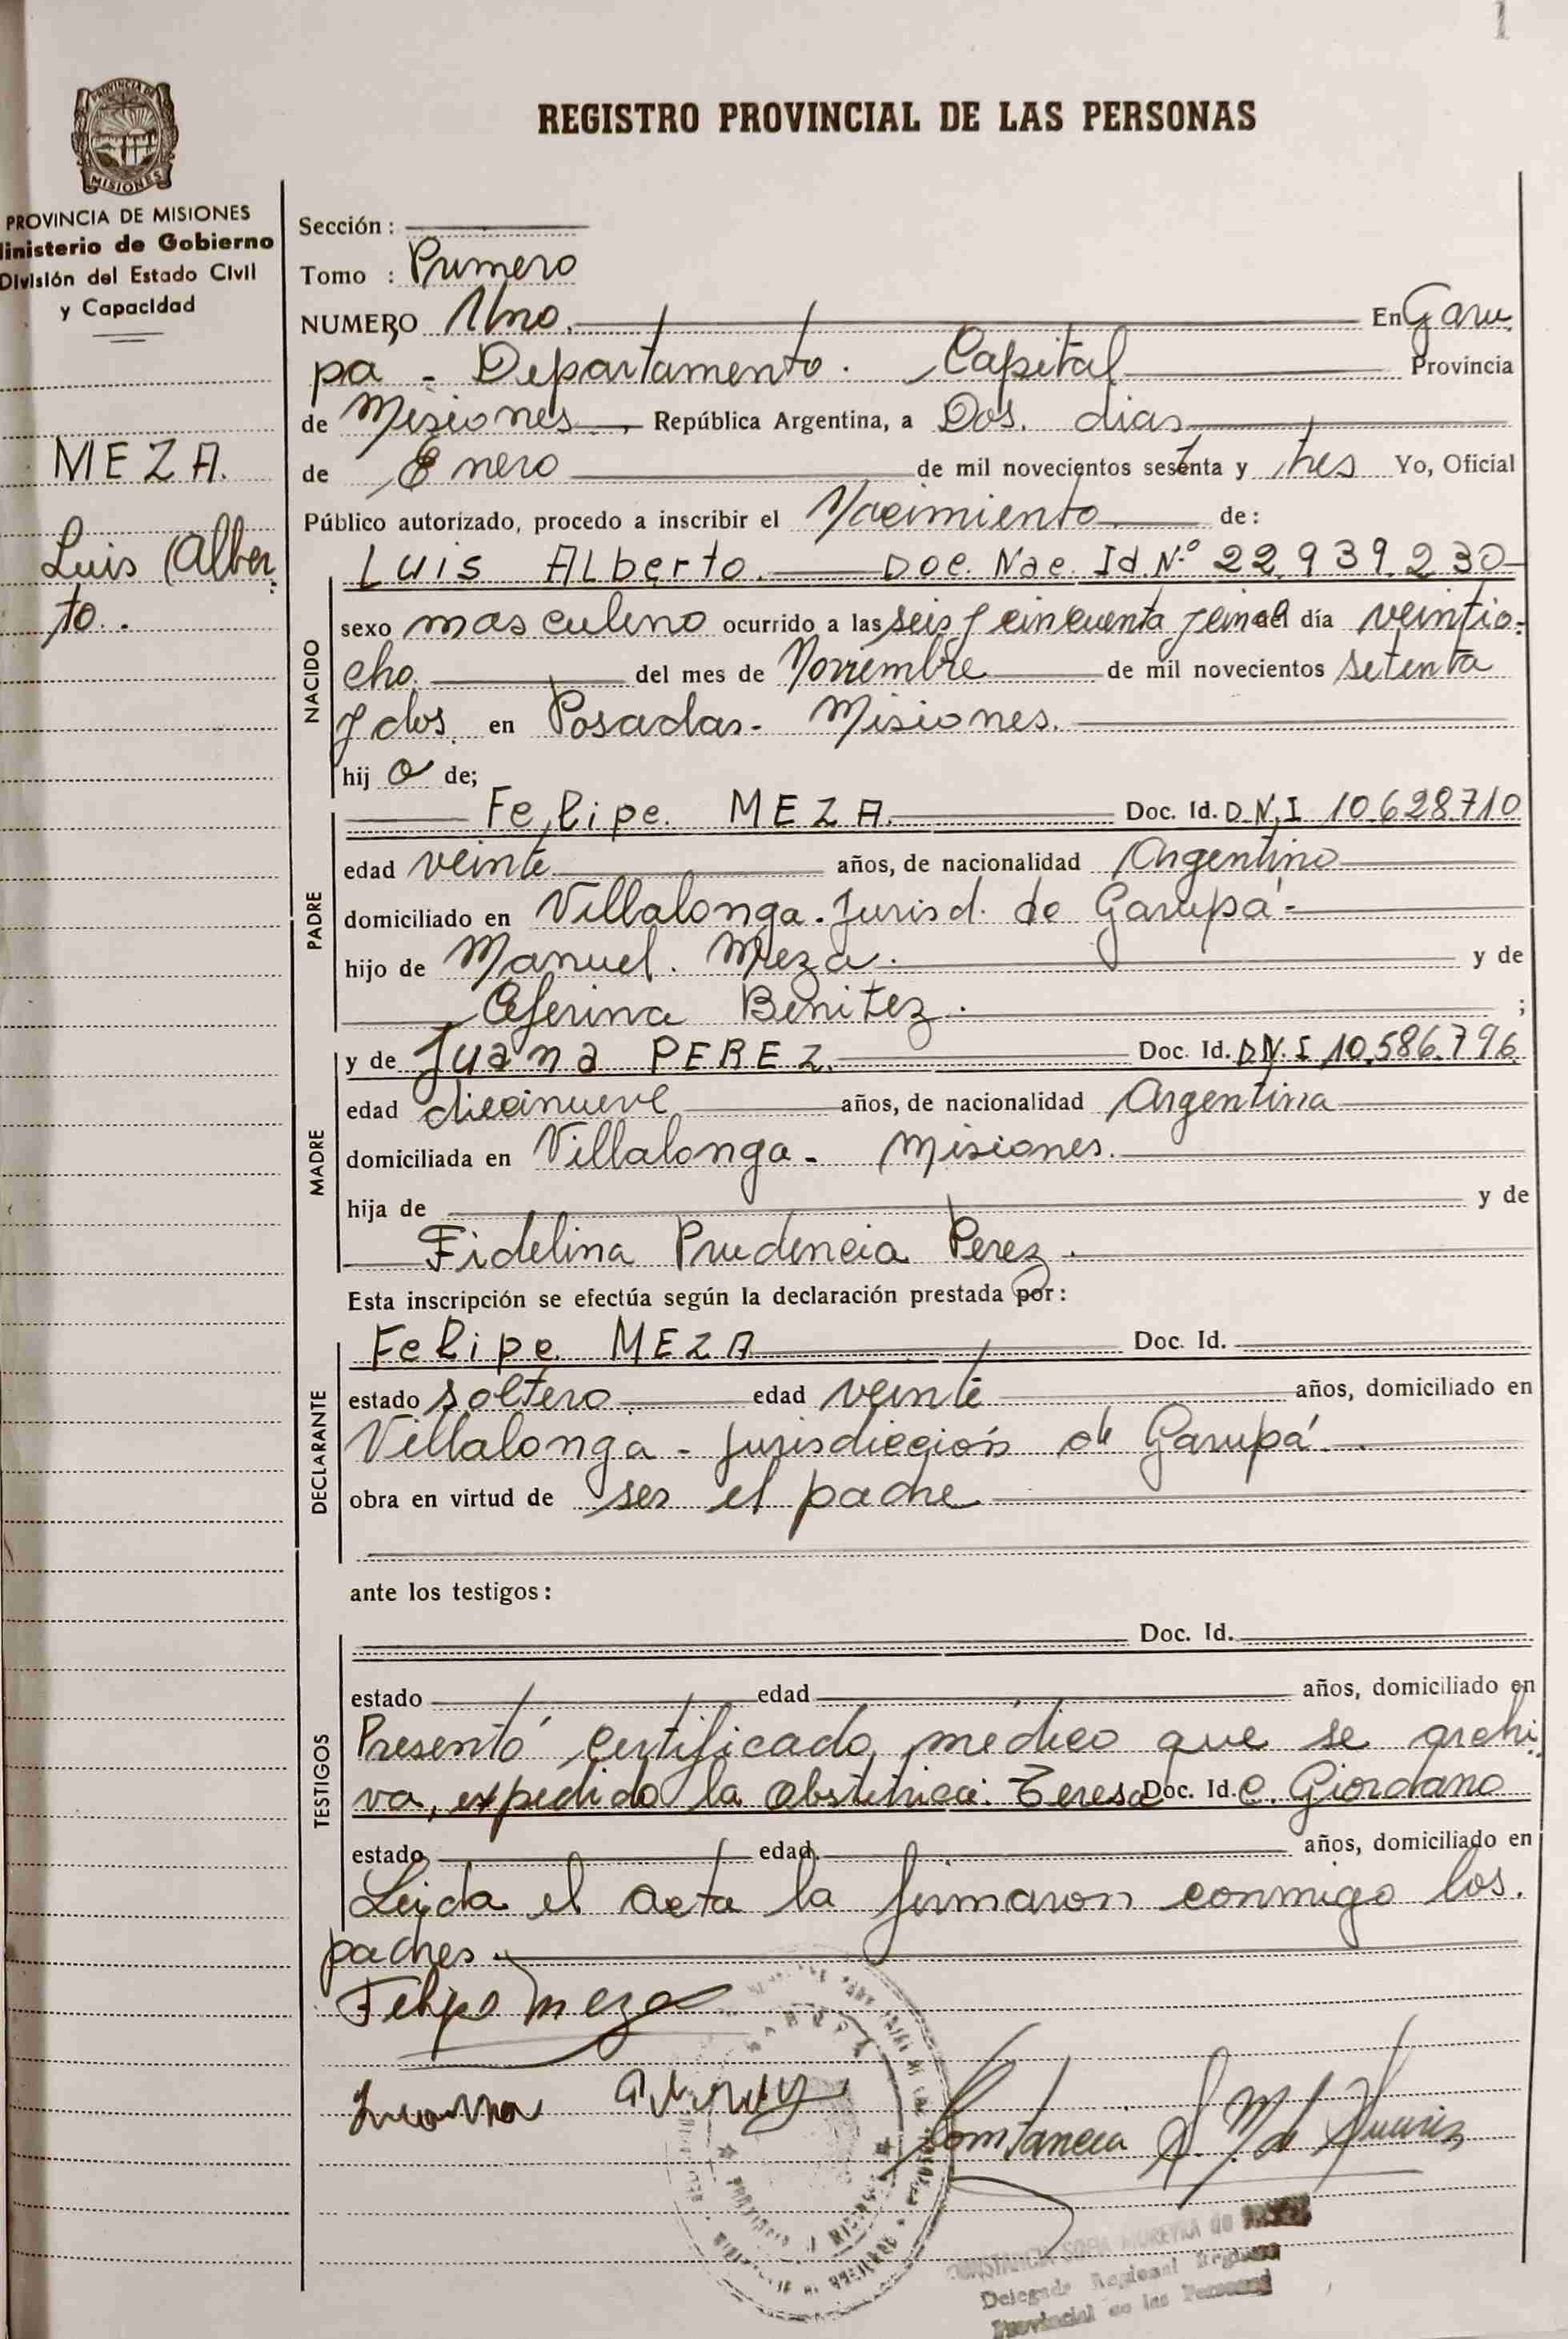 1
REGISTRO PROVINCIAL DE LAS PERSONAS
PROVINCIA DE
MISIONES
PROVINCIA DE MISIONES
Ministerio de Gobierno
División del Estado Civil
y Capacidad
MEZA.
Luis Alber
to..
Sección :
Tomo : Primero
NUMERO Uno. En Garu
pa - Departamento. Capital Provincia
de Misiones República Argentina, a Dos. dias
de Enero de mil novecientos sesenta y tres Yo, Oficial
Público autorizado, procedo a inscribir el Nacimiento de:
Luis Alberto. Doc. Nac. Id. Nº 22.939.230
NACIDO
sexo masculino ocurrido a las seis y cincuenta y cinco del día veintio-
cho. del mes de Noviembre de mil novecientos setenta
y dos. en Posadas- Misiones.
hij o de;
PADRE
Felipe. MEZA. Doc. Id. D.N.I 10.628.710
edad veinte años, de nacionalidad Argentino
domiciliado en Villalonga. Jurisd. de Garupá-
hijo de Manuel. Meza. y de
Ceferina Benitez. ;
MADRE
y de Juana PEREZ. Doc. Id. D.N.I 10.586.796
edad diecinueve años, de nacionalidad Argentina
domiciliada en Villalonga- Misiones.
hija de y de
Fidelina Prudencia Perez.
Esta inscripción se efectúa según la declaración prestada por:
DECLARANTE
Felipe MEZA Doc. Id.
estado soltero. edad veinte años, domiciliado en
Villalonga - Jurisdiccion de Garupá.
obra en virtud de ser el padre
ante los testigos:
TESTIGOS
Doc. Id.
estado edad años, domiciliado en
Presentó certificado médico que se archi
va, expedido la obstetrica: Teresa Doc. Id. C. Giordano
estado edad. años, domiciliado en
Leida el acta la firmaron conmigo los.
padres.
Felipe Meza
Juana
Constancia S. M. de
CONSTANCIA SOFIA MOREYRA DE
Delegada Regional Registro
Provincial de las Personas